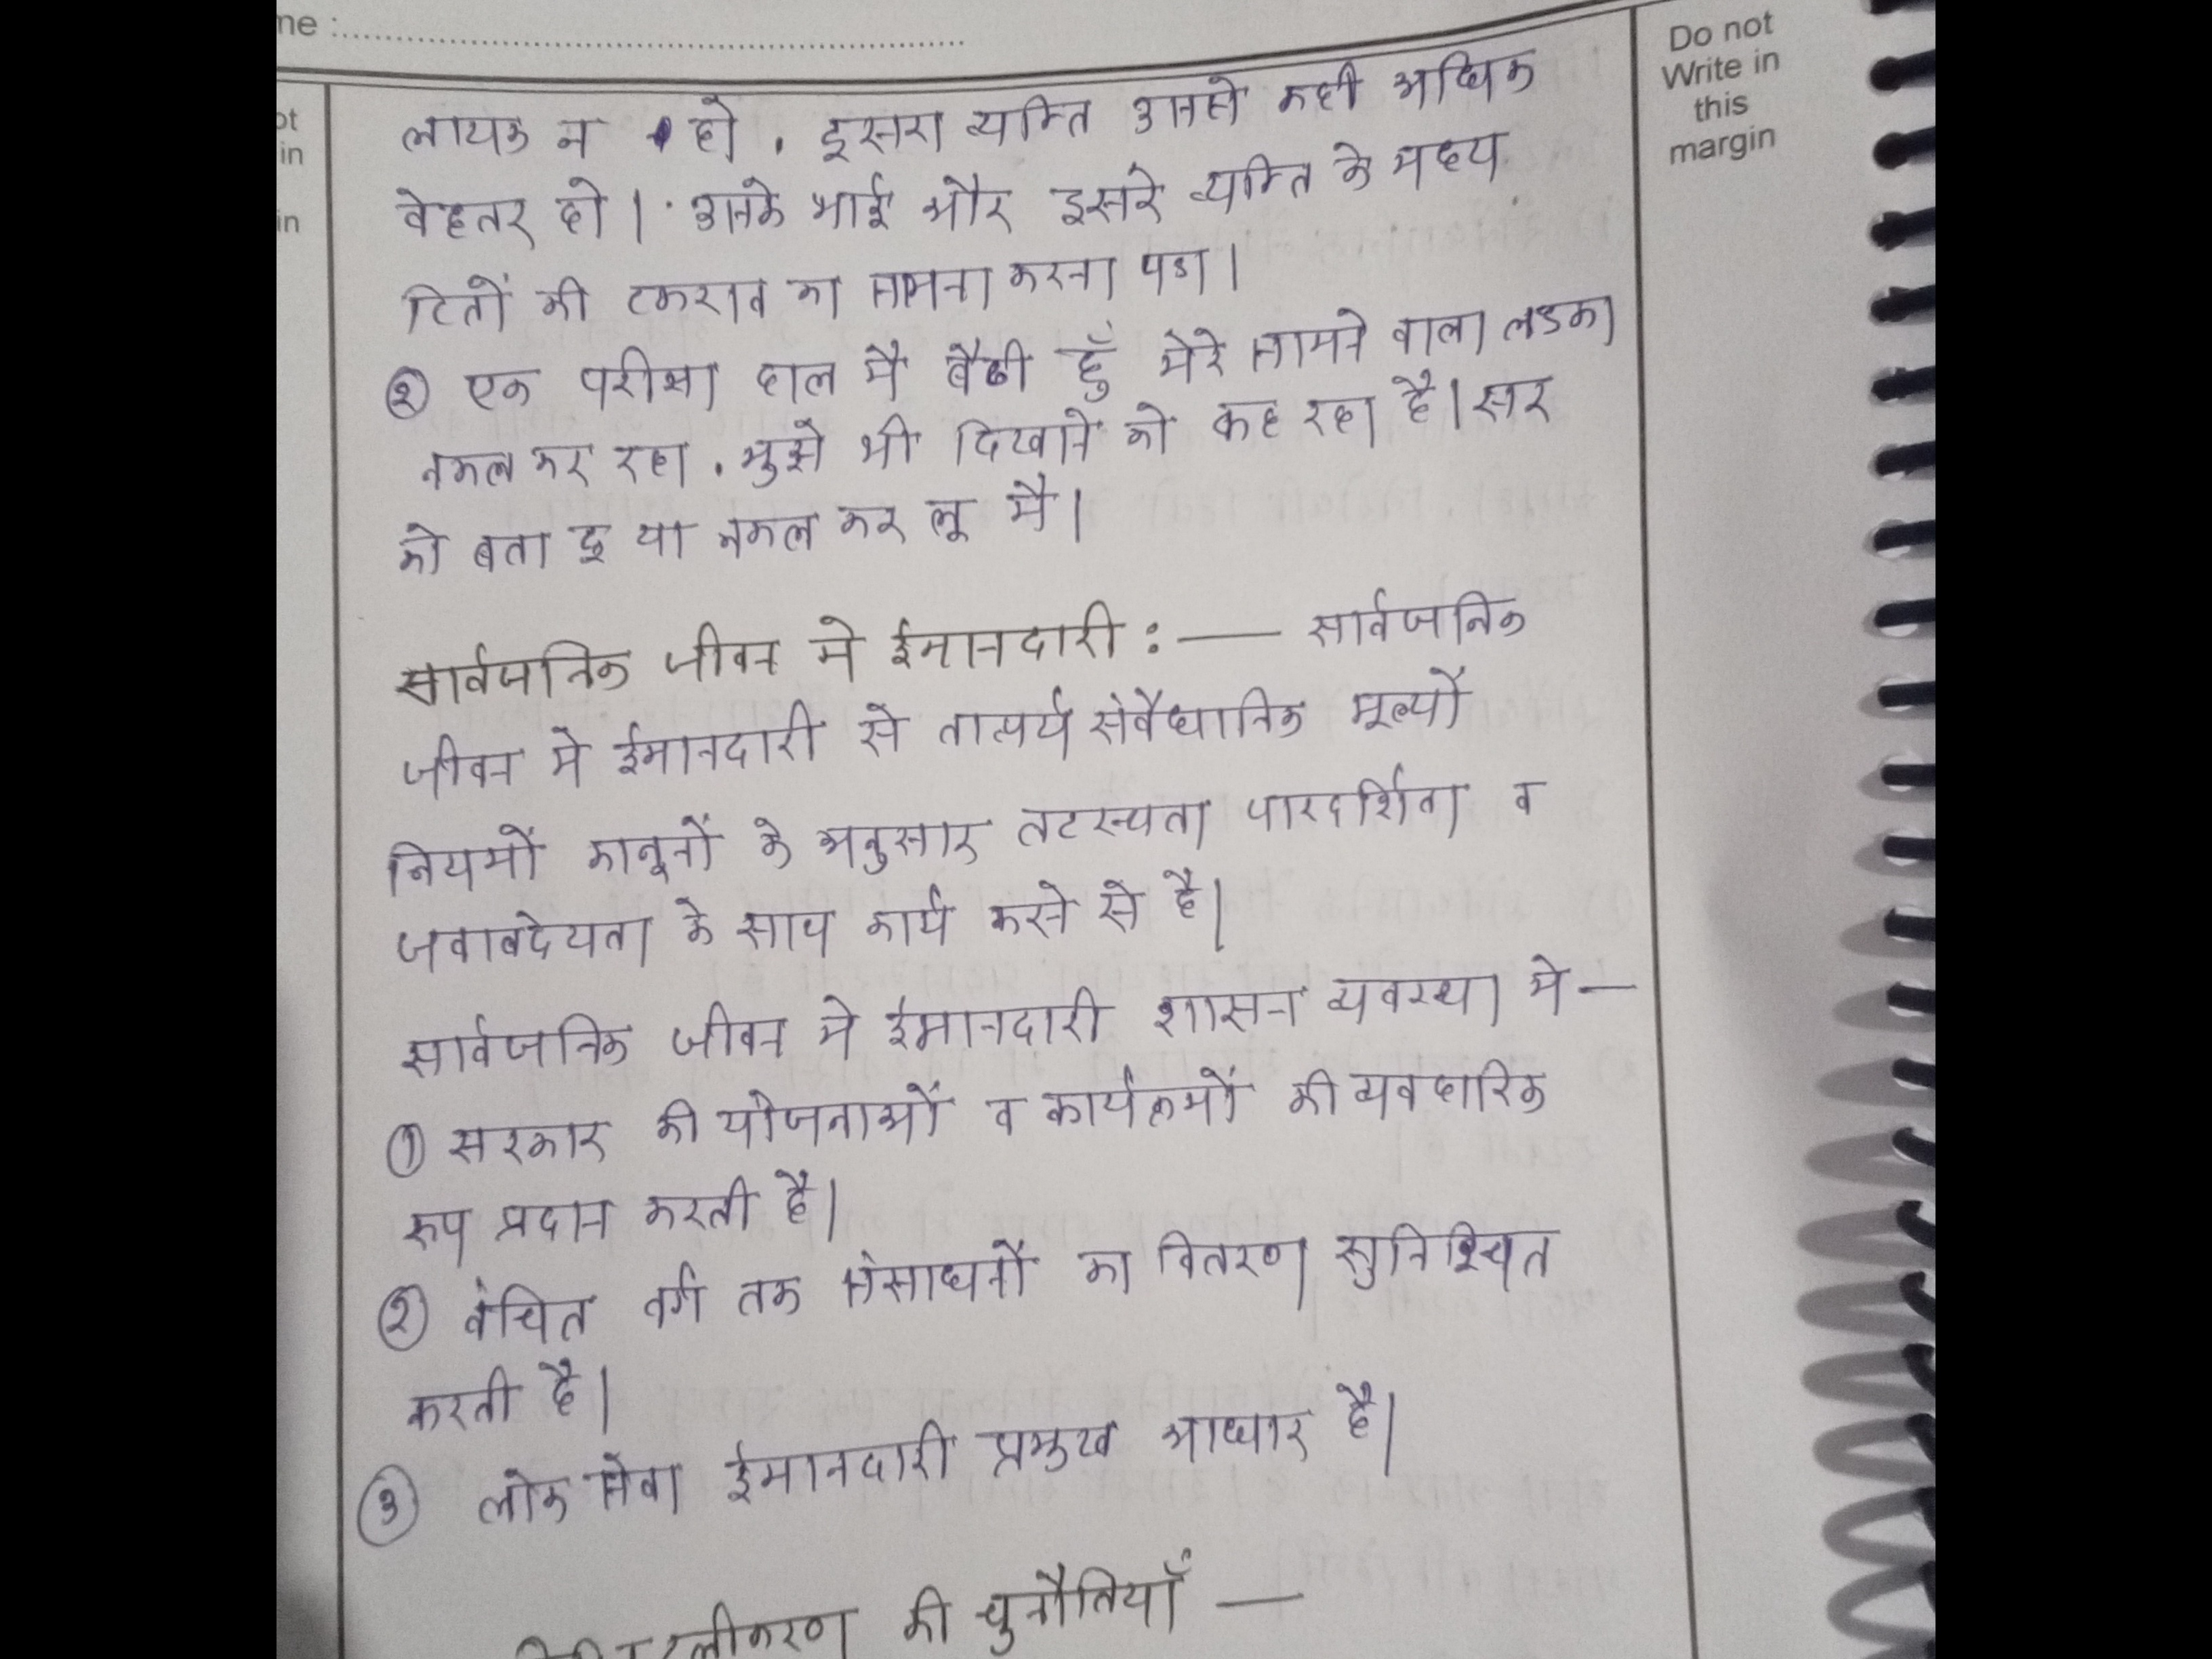 ne :
ot
in
in
Do not
Write in
this
margin
लायक न हो, दूसरा व्यक्ति उनसे कही अधिक
बेहतर हो। उनके भाई और दूसरे व्यक्ति के मध्य
हितों की टकराव का सामना करना पडा।
② एक परीक्षा हाल मै बैठी हुँ मेरे सामने वाला लडका
नकल कर रहा, मुझे भी दिखाने को कह रहा है। सर
को बता दू या नकल कर लू मै।
सार्वजनिक जीवन मे ईमानदारी :— सार्वजनिक
जीवन मे ईमानदारी से तात्पर्य संवैधानिक मूल्यों
नियमों कानूनों के अनुसार तटस्थता पारदर्शिता व
जवाबदेयता के साथ कार्य करने से है।
सार्वजनिक जीवन मे ईमानदारी शासन व्यवस्था मे —
① सरकार की योजनाओं व कार्यक्रमों की व्यवहारिक
रूप प्रदान करती है।
② वंचित वर्ग तक संसाधनों का वितरण सुनिश्चित
करती है।
③ लोक सेवा ईमानदारी प्रमुख आधार है।
की चुनौतियाँ —